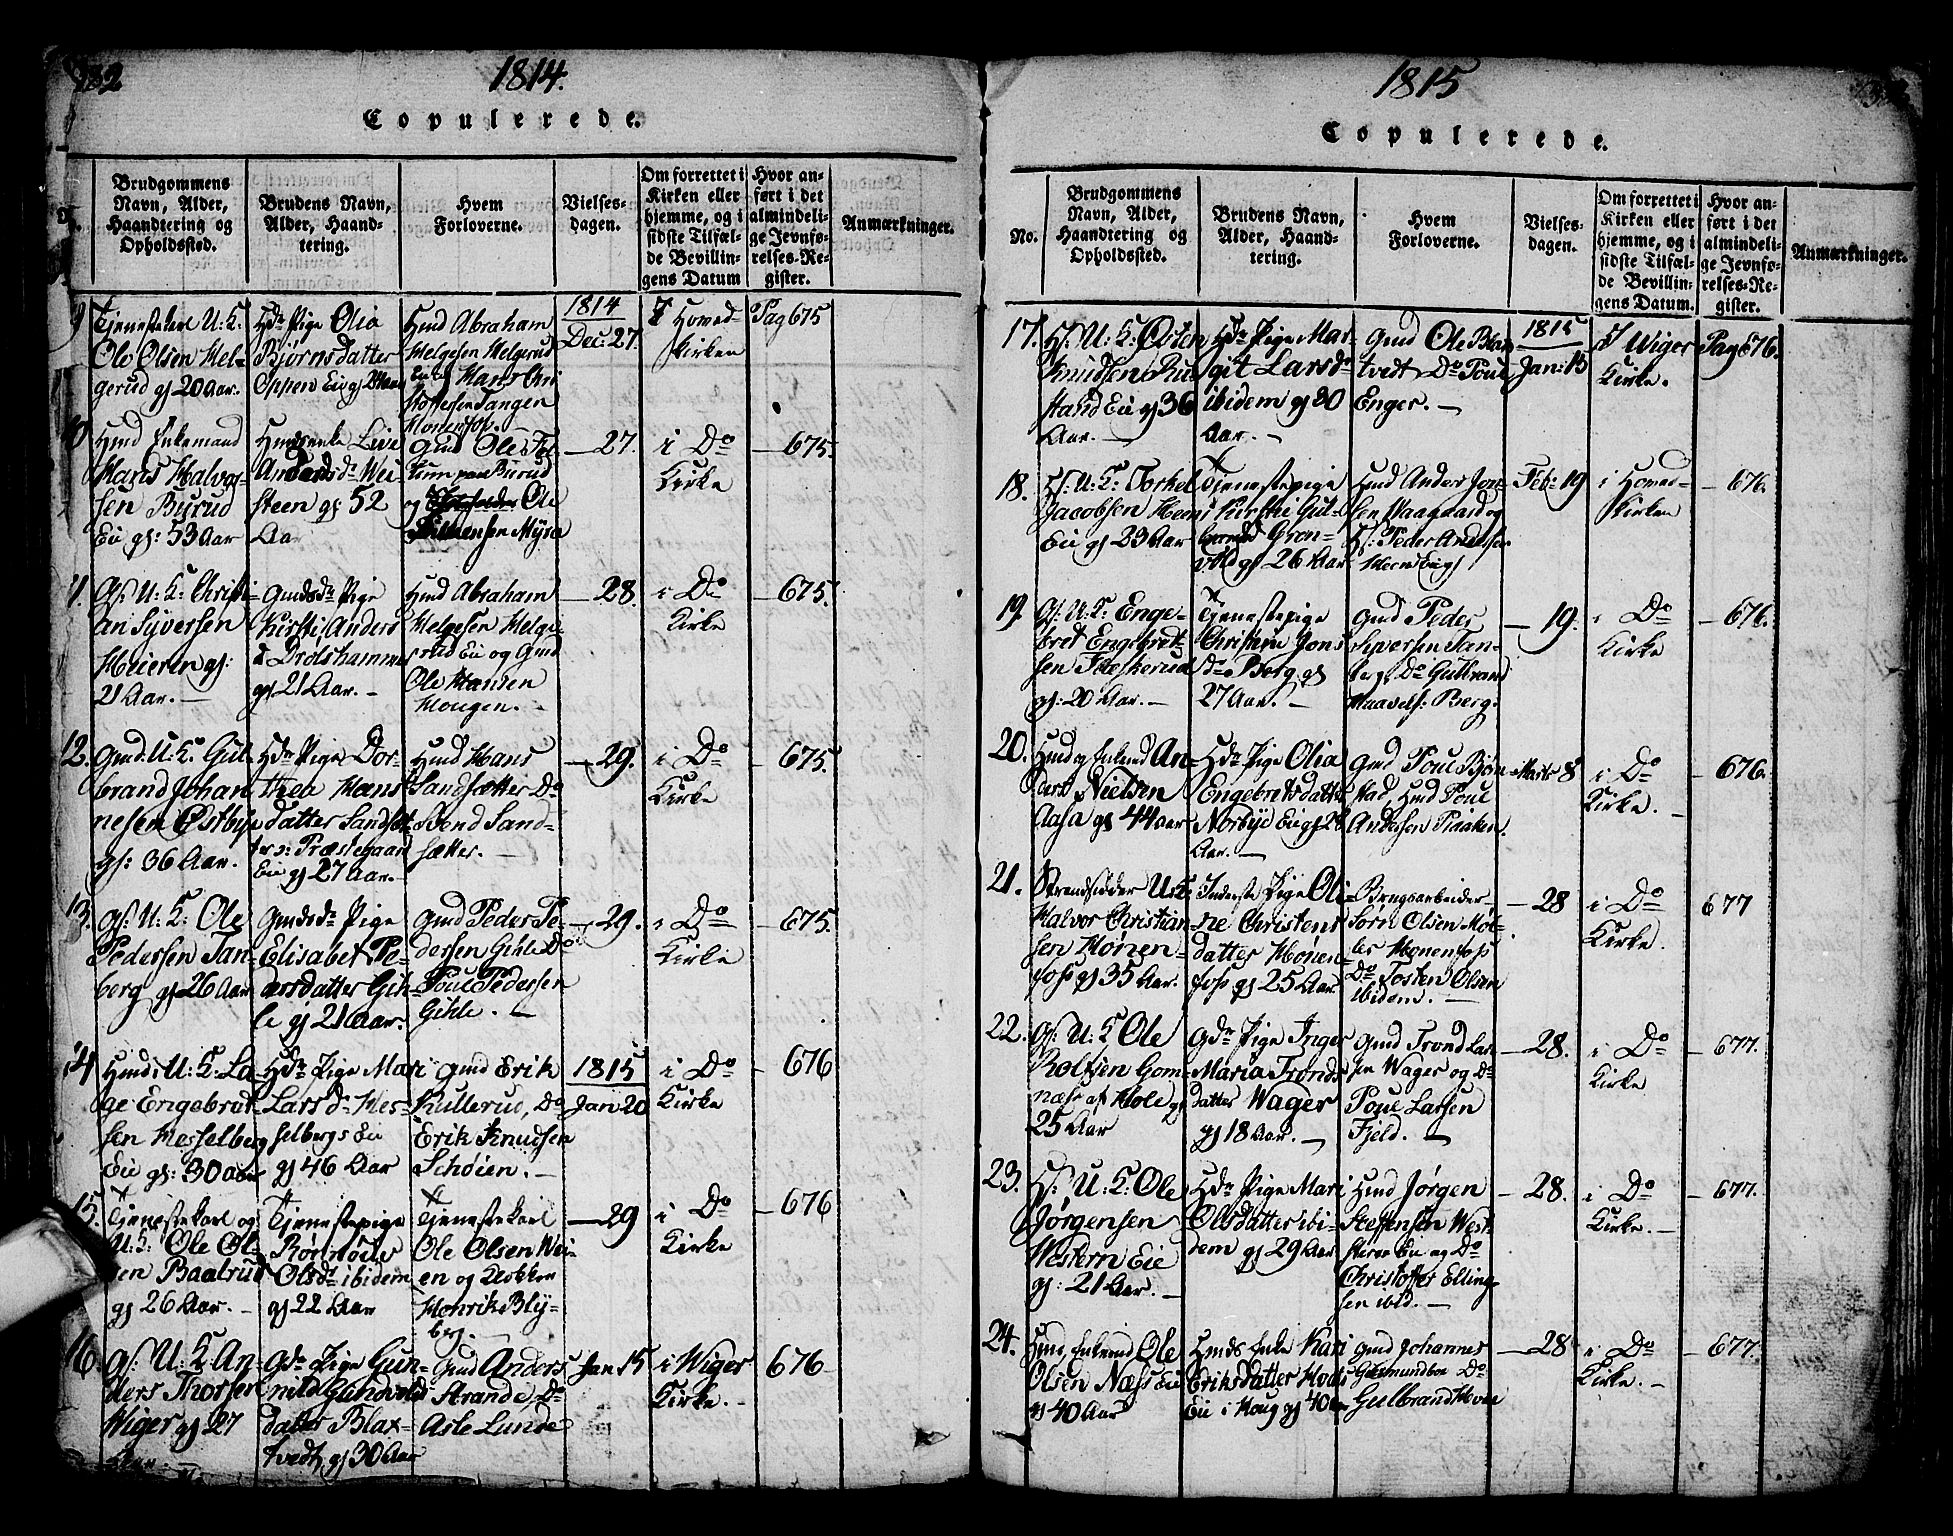 132
1814.
Copulerede.
Brudgommens Navn, Alder, Haandtering og Opholdssted.
Brudens Navn, Alder, Haandtering.
Hvem Forloverne.
Vielses-dagen.
Om forrettet i Kirken eller hjemme, og i sidste Tilfælde Bevillingens Datum
Hvor anført i det almindelige Jevnførelses-Register.
Anmærkninger.
9
Tjenestekarl U: K:
Ole Olsen Hel-
gerud gl 20 Aar.
Hdr Pige Olia
Bjørnsdatter
Oppen Eie gl
Hmd Abraham
Helgesen Helgerud
Hans Chri
stoffersen Tangen
Hønefos.
1814
Dec: 27.
i Hoved-
kirken
Pag 675
10
Hmd Enkemand
Hans Halvor-
sen Burud
Eie gl: 53 Aar
Hmds enke Live
Wei-
steen gl 52
Aar
Gmd Ole
Burud
og Ole
Myra
— 27.
i Do
Kirke
— 675.
11.
Gs. U: K: Christi-
an Syversen
Meieren gl:
21 Aar. —
Gmds dr Pige
Kirsti Anders
dr Drolshammer
gl. 21 Aar. —
Hmd Abraham
Helgesen Helge-
rud Eie og Gmd
Ole Hansen
Hougen. —
— 28.
i Do
Kirke
— 675.
12.
Gmd: U: K: Gul-
brand Johan-
nesen Østbye
gl: 36 Aar.
Hdr Pige Dor-
thea Hans
datter Sandsæt-
Præstegaard
Eie gl 27 Aar. —
Hmd Hans
Sandsætter Do
Svend Sand-
sætter. —
— 29.
i Do
Kirke
— 675.
13.
Gs. U: K: Ole
Pedersen Tan-
berg gl 26 Aar
Gmds dr Pige
Elisabet Pe-
dersdatter Gih-
le gl 21 Aar.
Gmd Peder Pe-
dersen Gihle Do
Poul Pedersen
Gihle. —
— 29.
i Do
Kirke
— 675.
14
Hmd: U: K: La-
ge Engebret-
sen Hesselberg
Eie gl: 30 Aar
Hdr Pige Mari
Lars dr Hes-
selbergs Eie
gl 46 Aar
Gmd Erik
Kullerud, Do
Erik Knudsen
Schöien. —
1815
Jan 20
i Do
Kirke
— 676
15.
Tjenestekarl og
U: K: Ole Ol-
sen Baalrud
gl 26 Aar. —
Tjenestepige
Olsdr ibidem
gl 22 Aar
Tjenestekarl
Ole Olsen Wei-
en og Klokker
Henrik Bly-
berg. —
— 29
i Do
Kirke
— 676
16.
Gs. U: K: An-
ders Thorsen
Wiger gl 27
Aar.
Gdr Pige Gun-
nild Gundvolds
datter Blax-
tvedt, gl 30 Aar
Gmd Anders
Strande, Do
Asle Lunde
Jan 15
i Wiger
Kirke. —
676
1815
Copulerede.
No.
Brudgommens Navn, Alder, Haandtering og Opholdssted.
Brudens Navn, Alder, Haandtering.
Hvem Forloverne.
Vielses-dagen.
Om forrettet i Kirken eller hjemme, og i sidste Tilfælde Bevillingens Datum.
Hvor anført i det almindelige Jevnførelses-Register.
Anmærkninger.
17.
Hs. U: K: Østen
Knudsen Ru-
stand Eie gl 36
Aar. —
Hdr Pige Mar-
git Larsdr
ibidem gl 30
Aar. —
Gmd Ole Blax-
tvedt Do Poul
Enger. —
1815
Jan: 15
i Wiger
Kirke.
Pag 676.
18.
Hs. U: K: Torkel
Jacobsen Hems
Eie gl 23 Aar
Tjenestepige
Kirsti Gul-
brands Gron-
vold gl 26 Aar
Hmd Anders Jon-
sen Waagaard og
Hs. Peder Andersen
Feb: 19
i Hoved-
kirken
— 676.
19.
Gs. U: K: Enge-
bret Engebret-
sen Fleskerud
gl: 20 Aar. —
Tjenestepige
Christine Jons
dr Berg gl
27 Aar. —
Gmd Peder
Syversen Tan-
berg, Do Gulbrand
Haavels: Berg.
— 19.
i Do
Kirke
— 676.
20.
Hmd og Enkemd An-
ders Nielsen
Aasa gl 44 aar
Hdr Pige Olia
Engebretsdatter
Norbye Eie gl 28
Aar. —
Gmd Poul Bjørn-
stad, Hmd Poul
Andersen Plaaken
Marts 8
i Do
Kirke. —
— 676.
21.
Strandsidder U: K:
Halvor Christian-
sen Hønen-
fos gl 35 Aar.
Inderste Pige Oli-
ne Christens
datter Hønen-
fos gl 25 Aar
Brugsarbeider
Sørn Olsen Møl-
ler Hønenfos
Do Tosten Olsen
ibidem. —
— 28
i Do
Kirke.
677
22.
Gs. U: K: Ole
Rolfsen Gom-
næs af Hole gl
25 Aar
Gdr Pige Inger
Maria Tronds
datter Wager
gl 18 Aar. —
Gmd Trond Lar-
sen Wager og Do
Poul Larsen
Fjeld. —
— 28.
i Do
Kirke
— 677.
23.
Hs. U: K: Ole
Jørgensen
Western Eie
gl: 21 Aar. —
Hdr Pige Mari
Olsdatter ibi-
dem gl 29 Aar
Hmd Jørgen
Steffensen West-
eren Eie og Do
Christoffer Elling-
sen ibid. —
— 28.
i Do
Kirke. —
— 677.
24.
Hmd Enkemd Ole
Olsen Næss Eie
gl 40 Aar
Hmds Enke Kari
Eriksdatter
Eie i Houg gl 40 Aar
Gmd Johannes
Do
Gulbrand
— 28
i Do
Kirke. —
— 677.